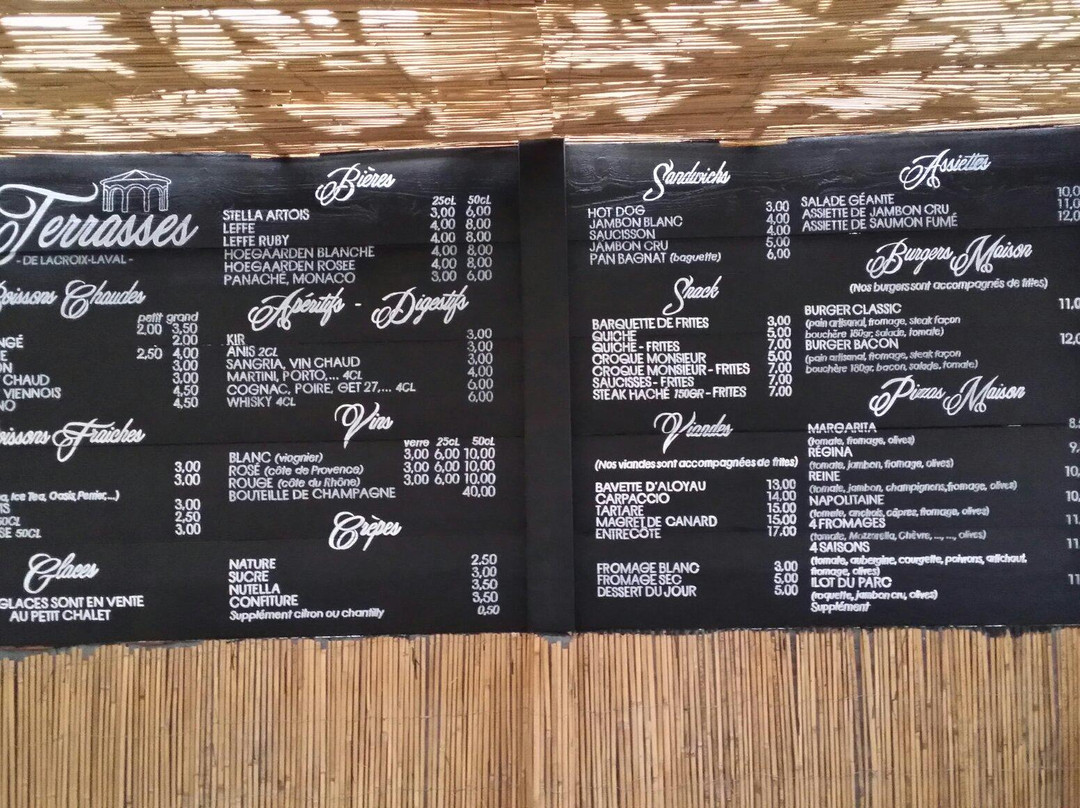 Terrasses
- DE LACROIX-LAVAL -
Boissons Chaudes
petit grand
2,00 3,50
2,00
2,50 4,00
3,00
CHAUD 3,00
VIENNOIS 4,50
4,50
Boissons Fraîches
3,00
3,00
Ice Tea, Oasis, Perrier,...)
3,00
2,50
50CL 3,00
Glaces
GLACES SONT EN VENTE
AU PETIT CHALET
Bières
25CL 50CL
STELLA ARTOIS 3,00 6,00
LEFFE 4,00 8,00
LEFFE RUBY 4,00 8,00
HOEGAARDEN BLANCHE 4,00 8,00
HOEGAARDEN ROSEE 4,00 8,00
PANACHÉ, MONACO 3,00 6,00
Apéritifs - Digestifs
KIR 3,00
ANIS 2CL 3,00
SANGRIA, VIN CHAUD 4,00
MARTINI, PORTO,... 4CL 4,00
COGNAC, POIRE, GET 27,... 4CL 6,00
WHISKY 4CL 6,00
Vins
verre 25CL 50CL
BLANC (viognier) 3,00 6,00 10,00
ROSÉ (côte de Provence) 3,00 6,00 10,00
ROUGE (côte du Rhône) 3,00 6,00 10,00
BOUTEILLE DE CHAMPAGNE 40,00
Crèpes
NATURE 2,50
SUCRE 3,00
NUTELLA 3,50
CONFITURE 3,50
Supplément citron ou chantilly 0,50
Sandwichs
HOT DOG 3,00
JAMBON BLANC 4,00
SAUCISSON 4,00
JAMBON CRU 5,00
PAN BAGNAT (baguette) 6,00
Snack
BARQUETTE DE FRITES 3,00
QUICHE 5,00
QUICHE - FRITES 7,00
CROQUE MONSIEUR 5,00
CROQUE MONSIEUR - FRITES 7,00
SAUCISSES - FRITES 7,00
STEAK HACHÉ 150GR - FRITES 7,00
Viandes
(Nos viandes sont accompagnées de frites)
BAVETTE D'ALOYAU 13,00
CARPACCIO 14,00
TARTARE 15,00
MAGRET DE CANARD 15,00
ENTRECÔTE 17,00
FROMAGE BLANC 3,00
FROMAGE SEC 5,00
DESSERT DU JOUR 5,00
Assiettes
SALADE GÉANTE 10,0
ASSIETTE DE JAMBON CRU 11,0
ASSIETTE DE SAUMON FUMÉ 12,0
Burgers Maison
(Nos burgers sont accompagnés de frites)
BURGER CLASSIC 11,0
(pain artisanal, fromage, steak façon
bouchère 180gr, salade, tomate)
BURGER BACON 12,0
(pain artisanal, fromage, steak façon
bouchère 180gr, bacon, salade, tomate)
Pizzas Maison
MARGARITA 8,
(tomate, fromage, olives)
RÉGINA 9,
(tomate, jambon, fromage, olives)
REINE 10,
(tomate, jambon, champignons, fromage, olives)
NAPOLITAINE 10,
(tomate, anchois, câpres, fromage, olives)
4 FROMAGES 11,
(tomate, Mozzarella, Chèvre, ..., ..., olives)
4 SAISONS 11,
(tomate, aubergine, courgette, poivrons, artichaut,
fromage, olives)
ILOT DU PARC 11
(roquette, jambon cru, olives)
Supplément